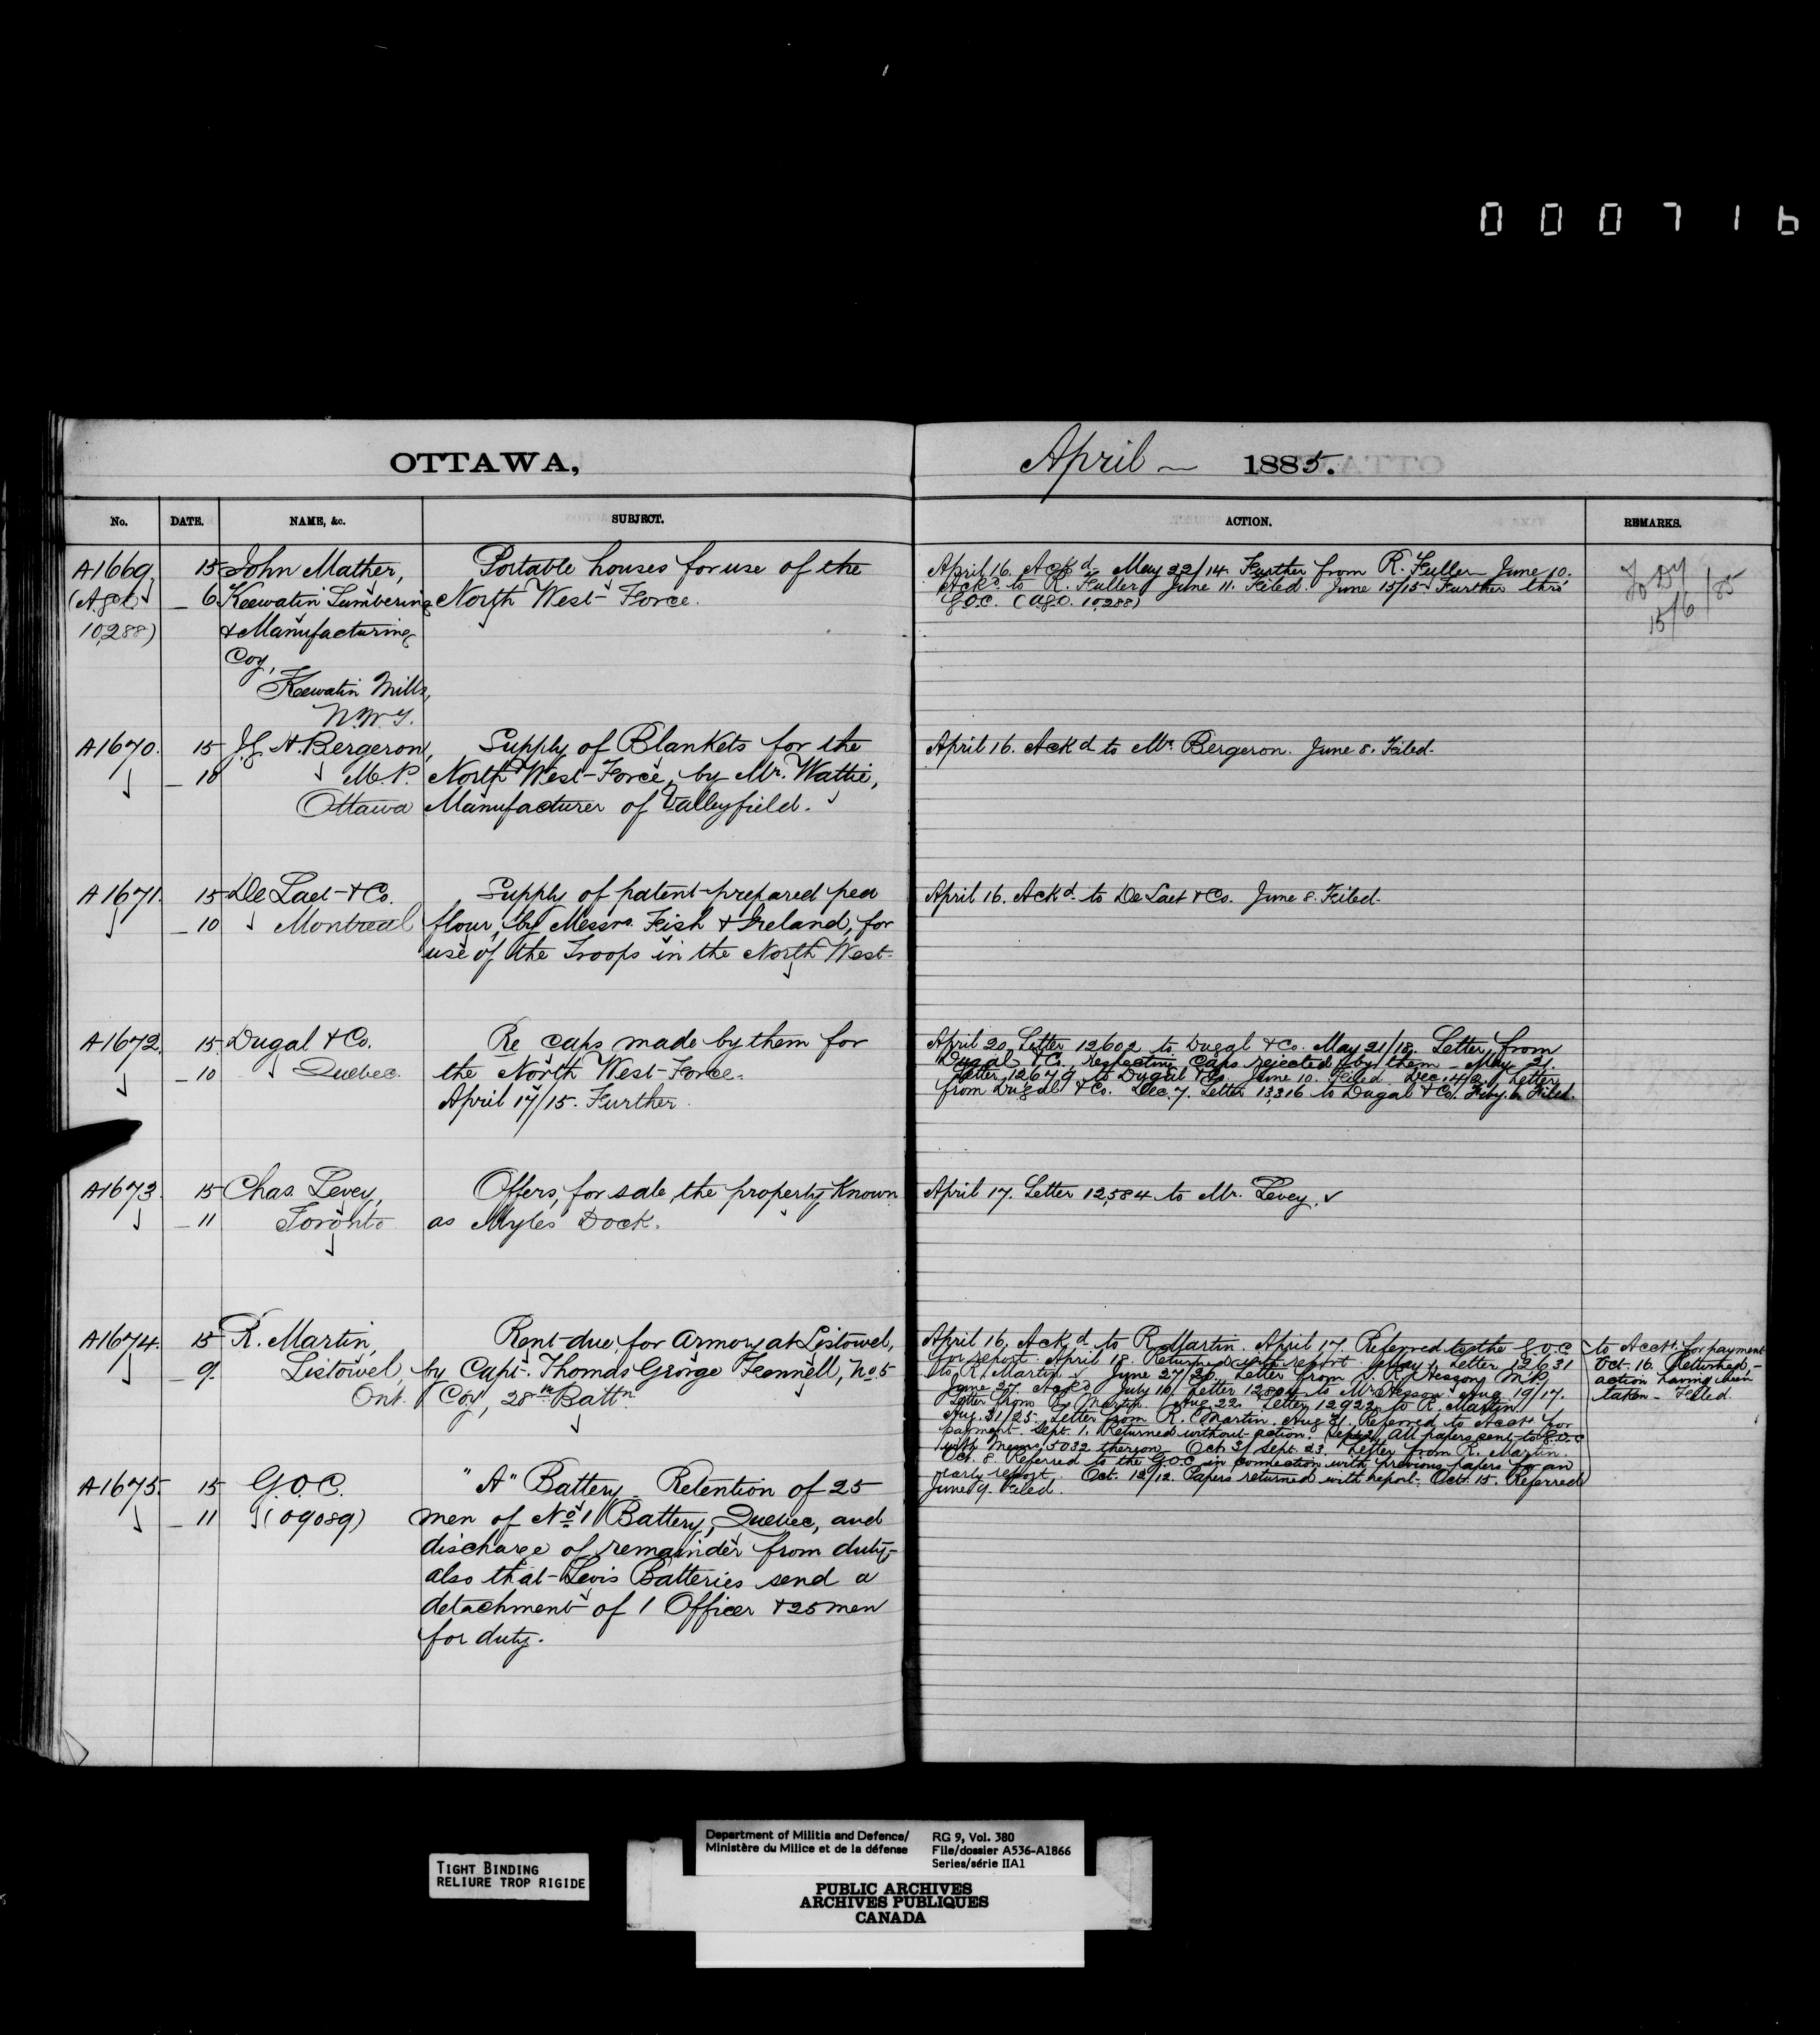 000716
OTTAWA,
April 1885.
No.
DATE.
NAME, &c.
SUBJECT.
ACTION.
REMARKS.
A1669.
(Ago
10,288)
15
_ 6
John Mather,
Keewatin Lumbering
& Manufacturing
Coy,
Keewatin Mills,
N.W.T.
Portable houses for use of the
North West Force.
April 16. Ackd. May 22/14. Further from R. Fuller June 10.
Ackd. to R. Fuller June 11. Filed. June 15/15 Further thro'
G.O.C. (Ago. 10,288)
15/6/85
A1670.
15
_ 10
J.G. H. Bergeron,
M.P.
Ottawa
Supply of Blankets for the
North West Force, by Mr. Wattie,
Manufacturer of Valleyfield.
April 16. Ackd to Mr. Bergeron. June 8. Filed.
A1671.
15
_ 10
De Laet & Co.
Montreal
Supply of patent prepared pea
flour, by Messrs. Fish & Ireland, for
use of the Troops in the North West.
April 16. Ackd. to De Laet & Co. June 8. Filed.
A1672.
15
_ 10
Dugal & Co.
Quebec.
Re caps made by them for
the North West Force.
April 17/15. Further.
April 20. Letter 12602 to Dugal & Co. May 21/18. Letter from
Dugal & Co. respecting Caps rejected by them _ May 21.
Letter 12679 to Dugal & Co. June 10. Filed. Dec. 4/2. Letter
from Dugal & Co. Dec. 7. Letter 13,316 to Dugal & Co. Feby. 6. Filed.
A1673.
15
_ 11
Chas. Levey,
Toronto
Offers, for sale, the property Known
as Myles Dock.
April 17. Letter 12,584 to Mr. Levey.
A1674.
15
_ 9.
R. Martin,
Listowel,
Ont.
Rent due, for Armory at Listowel,
by Capt. Thomas George Fennell, No. 5
Coy, 28th Battn.
April 16. Ackd. to R. Martin. April 17. Referred to the G.O.C
for report. April 18. Returned with report. May 1. Letter 12631
to R. Martin. June 27/26. Letter from S. R. Hesson, M.P.
June 27. Ackd. July 16. Letter 12804 to Mr. Hesson. Aug. 19/17.
Letter from R. Martin. Aug. 22. Letter 12922 to R. Martin
Aug. 31/25. Letter from R. Martin. Aug. 31. Referred to Acct. for
payment. Sept. 1. Returned without action. Sept. 2. All papers sent to G.O.C
with Memo. 5032 thereon. Oct. 3/ Sept. 23. Letter from R. Martin.
Oct. 8. Referred to the G.O.C in connection with previous papers for an
early report. Oct. 12/12. Papers returned with report. Oct. 15. Referred
to Acct. for payment
Oct. 16. Returned,-
action having been
taken - Filed.
A1675.
15
_ 11
G.O.C.
(09089)
"A" Battery _ Retention of 25
men of No. 1 Battery, Quebec, and
discharge of remainder from duty,-
also that Levis Batteries send a
detachment of 1 Officer & 25 men
for duty.
June 9. Filed.
TIGHT BINDING
RELIURE TROP RIGIDE
Department of Militia and Defence/
Ministère du Milice et de la défense
RG 9, Vol. 380
File/dossier A536-A1866
Series/série IIA1
PUBLIC ARCHIVES
ARCHIVES PUBLIQUES
CANADA